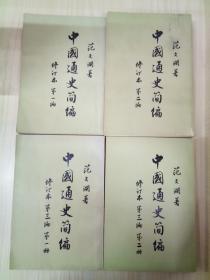 范文澜著
中國通史简编
修订本 第一编
范文澜著
中國通史简编
修订本 第二编
范文澜著
中國通史简编
修订本 第三编 第一册
范文澜著
中國通史简编
修订本 第三编 第二册